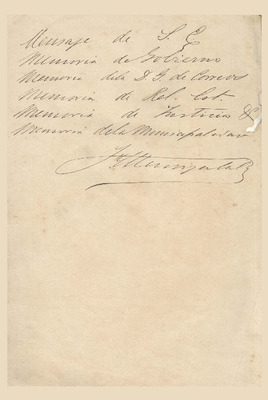 Mensaje de S. E
Memoria de Gobierno
Memoria dela D. G. de Correos
Memoria de Rel. Ext.
Memoria de Justicia &
Memoria dela Municipalidad